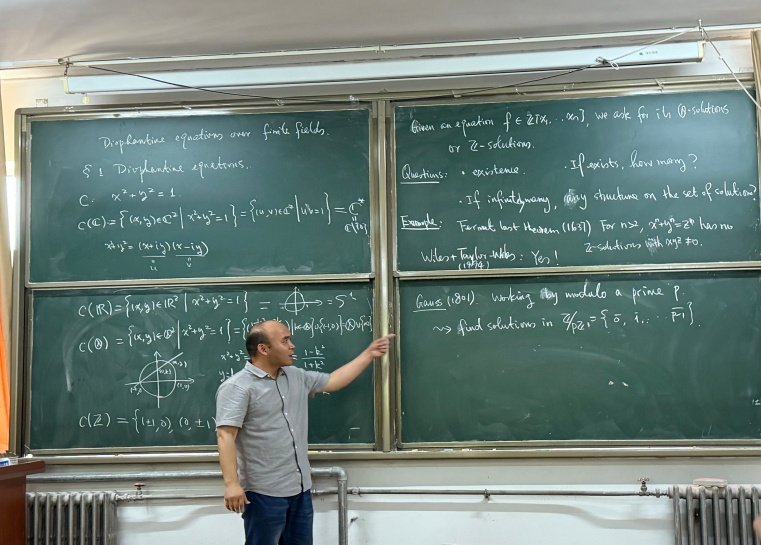 Diophantine equations over finite fields.
§ 1 Diophantine equations.
C: x²+y²=1.
C(ℂ)={(x,y)∈ℂ² | x²+y²=1}={(u,v)∈ℂ² | uv=1}=ℂ*
ℂ\{0}
x²+y²=(x+iy)(x-iy)
u v
C(ℝ)={(x,y)∈ℝ² | x²+y²=1} = = S¹
C(ℚ)={(x,y)∈ℚ² | x²+y²=1}=
x²+y²
1-k²
1+k²
C(ℤ)={(±1,0),(0,±1)
Given an equation f ∈ ℤ[x₁…xₙ], we ask for its ℚ-solutions
or ℤ-solutions.
Questions: • existence. • If exists, how many?
• If infinitely many, any structure on the set of solution?
Example: Fermat last theorem (1637) For n>2, xⁿ+yⁿ=zⁿ has no
ℤ-solutions with xyz≠0.
Wiles+Taylor-Wiles: Yes!
(1994)
Gauss (1801). working by modulo a prime p.
⇝ find solutions in ℤ/pℤ={0̄, 1̄, … p-1}.